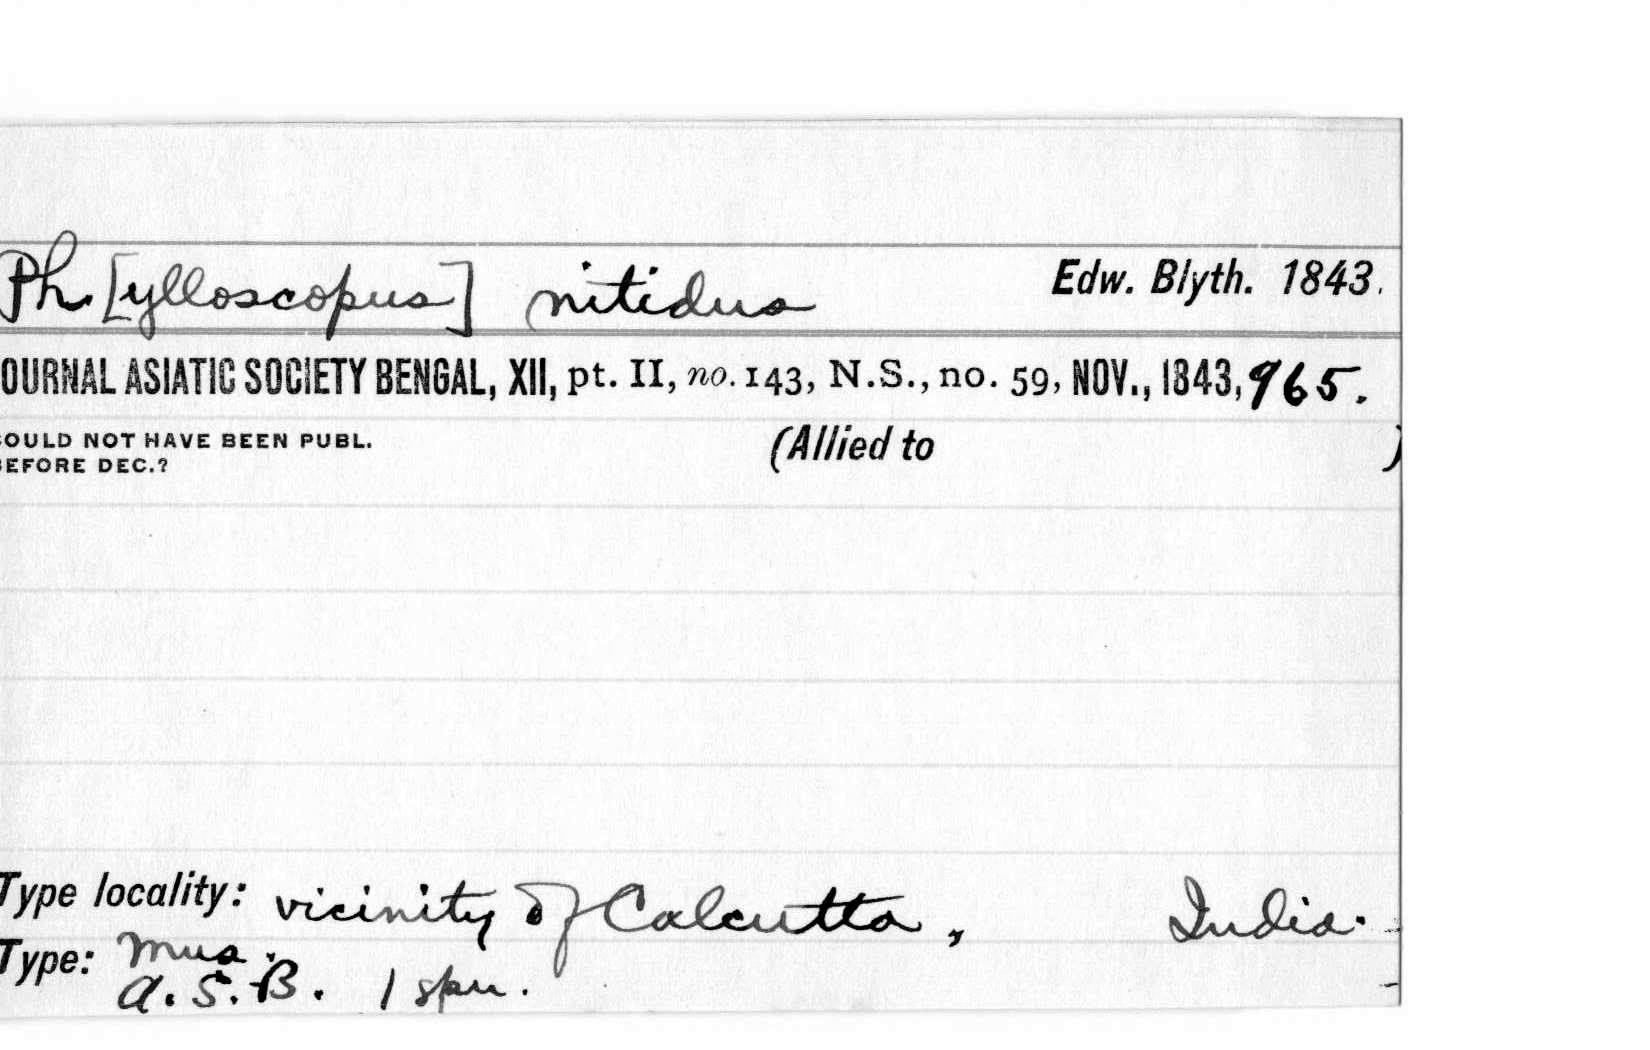 Ph. [ylloscopus] nitidus Edw. Blyth. 1843.
OURNAL ASIATIC SOCIETY BENGAL, XII, pt. II, no. 143, N.S., no. 59, NOV., 1843, 965.
COULD NOT HAVE BEEN PUBL. (Allied to )
BEFORE DEC.?
Type locality: vicinity of Calcutta, India.
Type: Mus.
A.S.B. 1 spm.